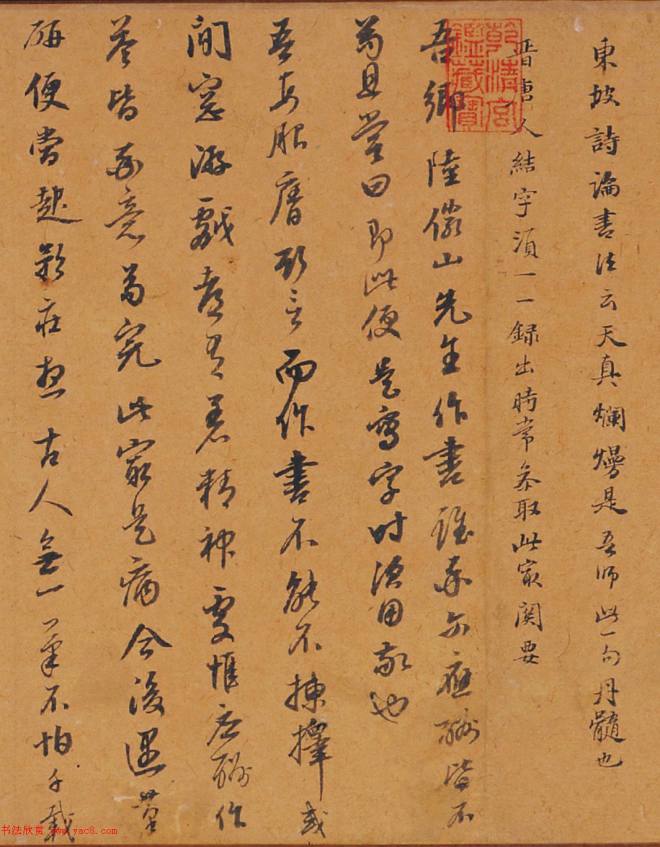 東坡詩論書法云天真爛熳是吾師此一句丹髓也
晉唐人結字須一一錄出時常參取此最關要
吾鄉陸儼山先生作書雖率爾應酬皆不
苟且嘗曰即此便是寫字時須用敬也
吾每服膺斯言而作書不能不揀擇或
閒窓游戲都有著精神處惟應酬作
答皆率意苟完此最是病今後遇筆
研便當起矜莊想古人無一筆不怕千載
乾清宮
鑑藏寶
书法欣赏 www.yac8.com